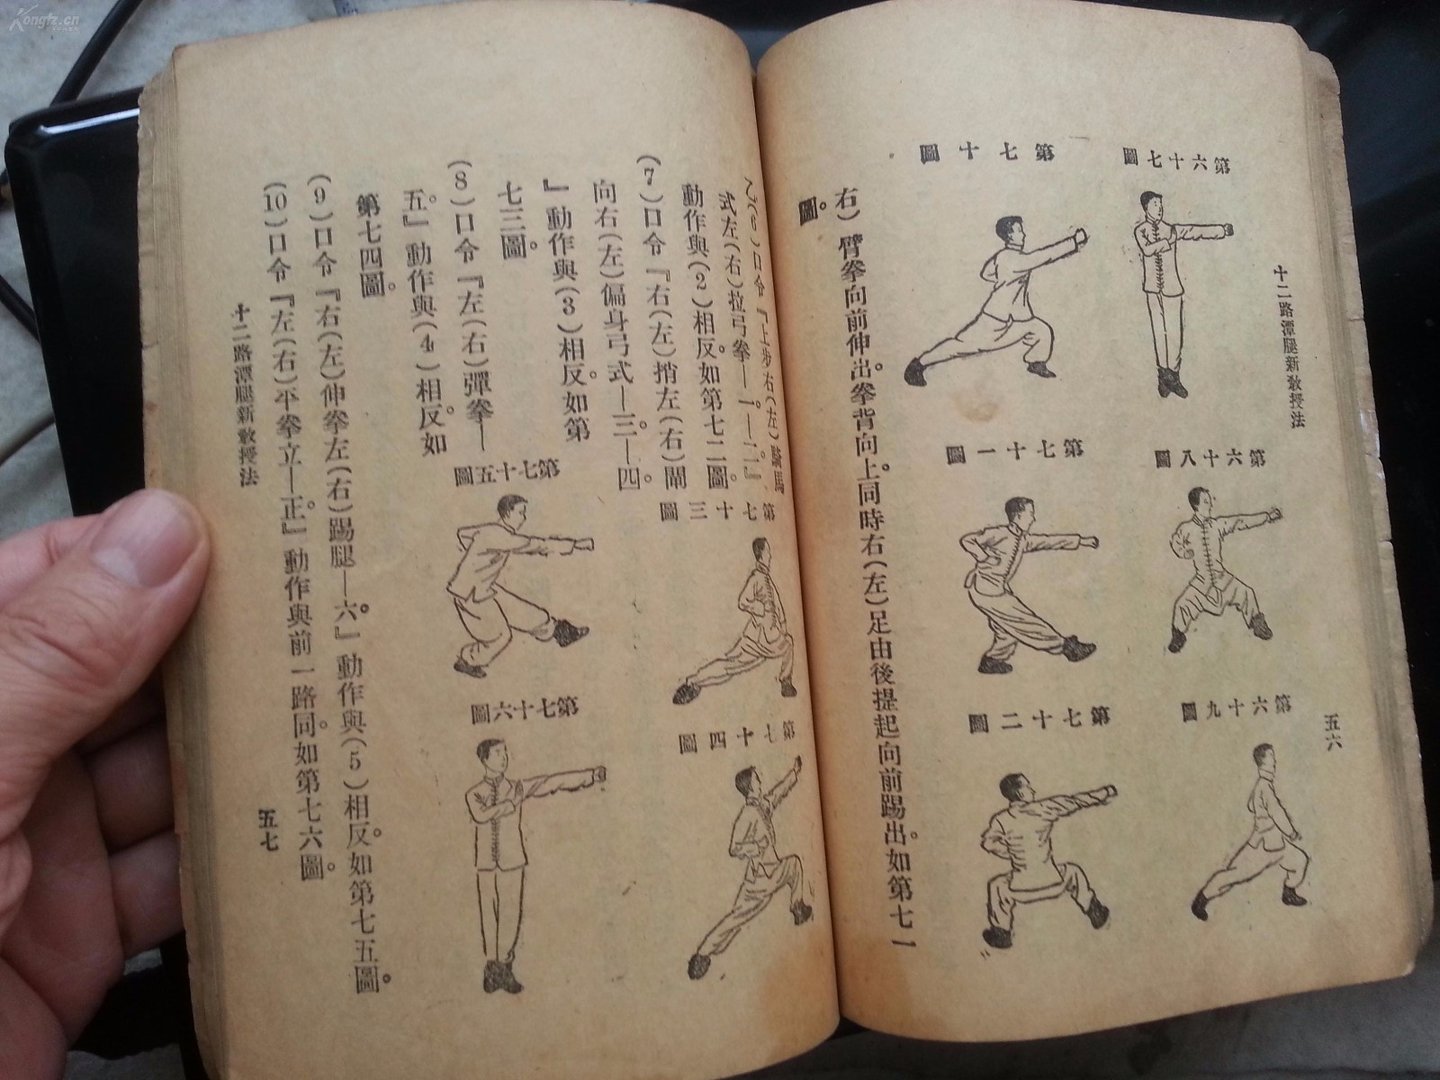 十二路潭腿新教授法
五六
第六十七圖
第六十八圖
第六十九圖
第七十圖
第七十一圖
第七十二圖
右）臂拳向前伸出。拳背向上。同時右（左）足由後提起向前踢出。如第七一
圖。
（6）口令『上步右（左）騎馬
式左（右）拉弓拳—一。—二。』
動作與（2）相反。如第七二圖。
第七十三圖
第七十四圖
（7）口令『右（左）捎左（右）閘
向右（左）偏身弓式—三。—四。
』動作與（3）相反。如第
七三圖。
（8）口令『左（右）彈拳—
五。』動作與（4）相反。如
第七四圖。
第七十五圖
第七十六圖
（9）口令『右（左）伸拳左（右）踢腿—六。』動作與（5）相反。如第七五圖。
（10）口令『左（右）平拳立—正。』動作與前一路同。如第七六圖。
十二路潭腿新教授法
五七
Kongfz.cn